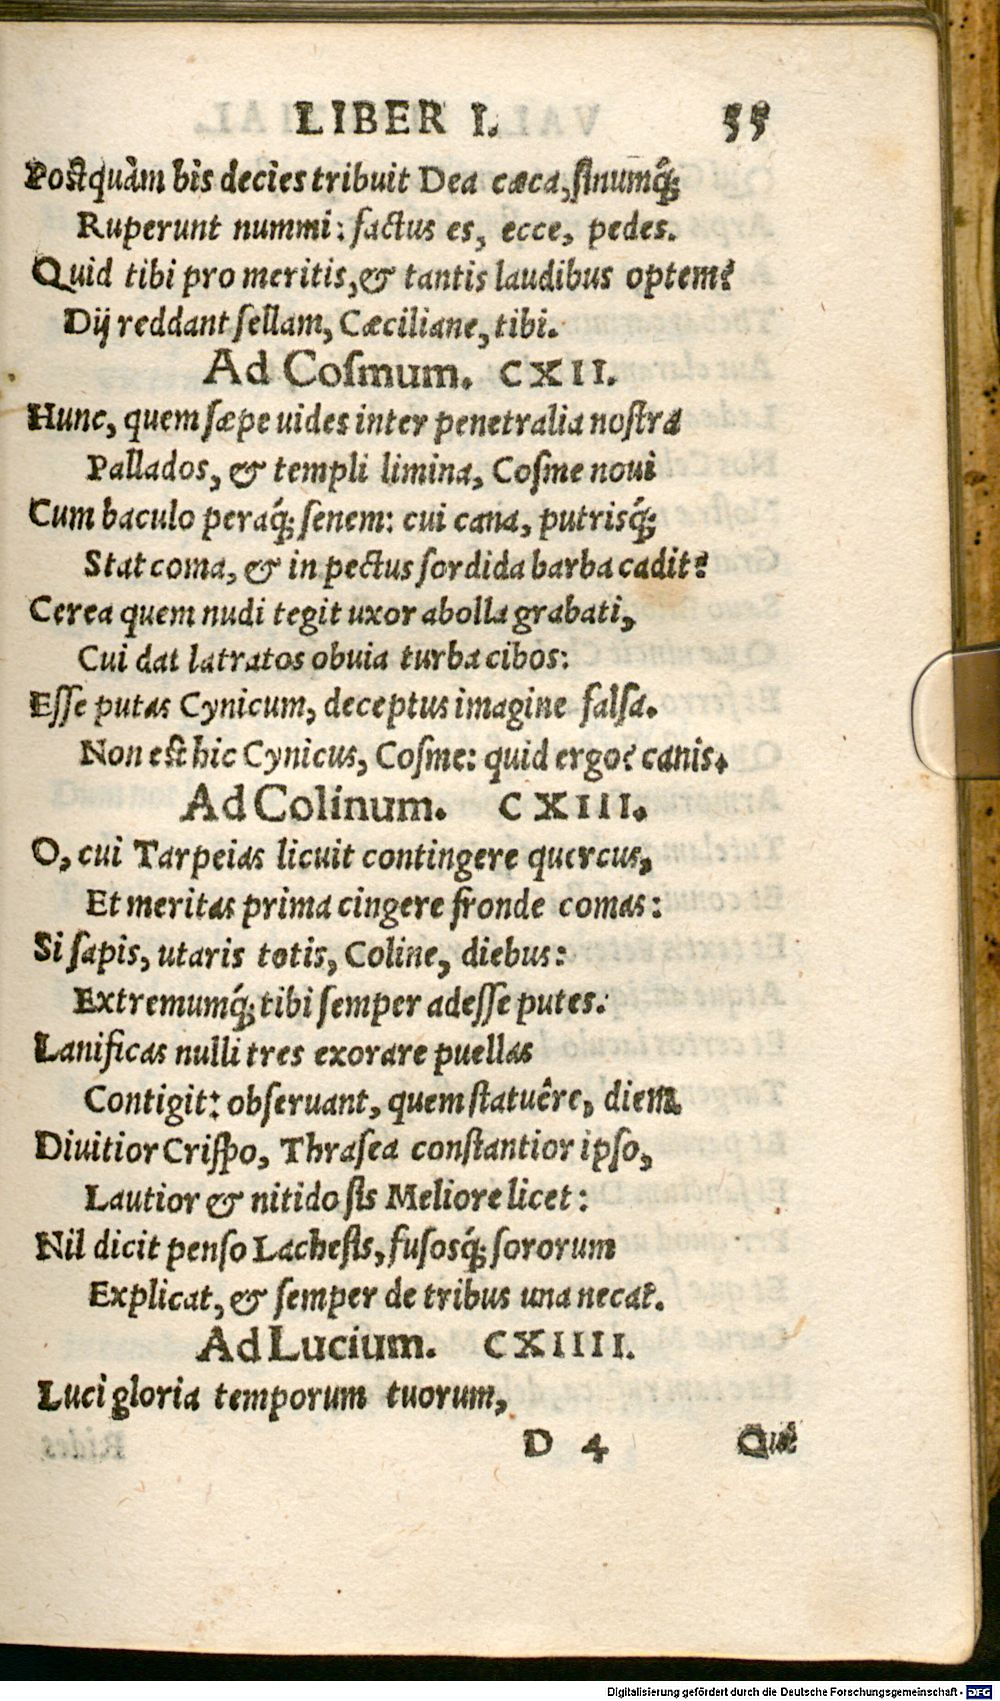 LIBER I. 55
Postquàm bis decies tribuit Dea cæca, sinumq́;
Ruperunt nummi: factus es, ecce, pedes.
Quid tibi pro meritis, & tantis laudibus optem?
Dij reddant sellam, Cæciliane, tibi.
Ad Cosmum. CXII.
Hunc, quem sæpe uides inter penetralia nostra
Pallados, & templi limina, Cosme noui
Cum baculo peraq́; senem: cui cana, putrisq́;
Stat coma, & in pectus sordida barba cadit?
Cerea quem nudi tegit uxor abolla grabati,
Cui dat latratos obuia turba cibos:
Esse putas Cynicum, deceptus imagine falsa.
Non est hic Cynicus, Cosme: quid ergo? canis.
Ad Colinum. CXIII.
O, cui Tarpeias licuit contingere quercus,
Et meritas prima cingere fronde comas:
Si sapis, utaris totis, Coline, diebus:
Extremumq́; tibi semper adesse putes.
Lanificas nulli tres exorare puellas
Contigit: obseruant, quem statuêre, diem.
Diuitior Crispo, Thrasea constantior ipso,
Lautior & nitido sis Meliore licet:
Nil dicit penso Lachesis, fusosq́; sororum
Explicat, & semper de tribus una necat.
Ad Lucium. CXIIII.
Luci gloria temporum tuorum,
D 4 Qui
Digitalisierung gefördert durch die Deutsche Forschungsgemeinschaft - DFG